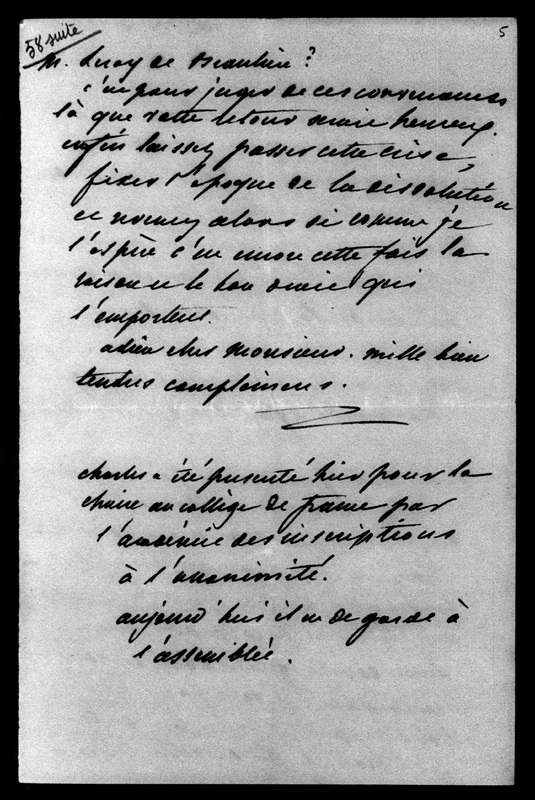 58 suite
5
M. Leroy de Beaulieu?
c'est pour juger de ces
là que votre retour serait heureux.
enfin laissez passer cette crise,
fixer l'époque de la dissolution
et alors si comme je
l'espère c'est encore cette fois la
raison et le bon droit qui
l'emportent.
adieu cher monsieur. mille bien
tendres complimens.
charles a été présenté hier pour la
chaire au collège de france par
l'académie des inscriptions
à l'unanimité.
aujourd'hui il est de garde à
l'assemblée.